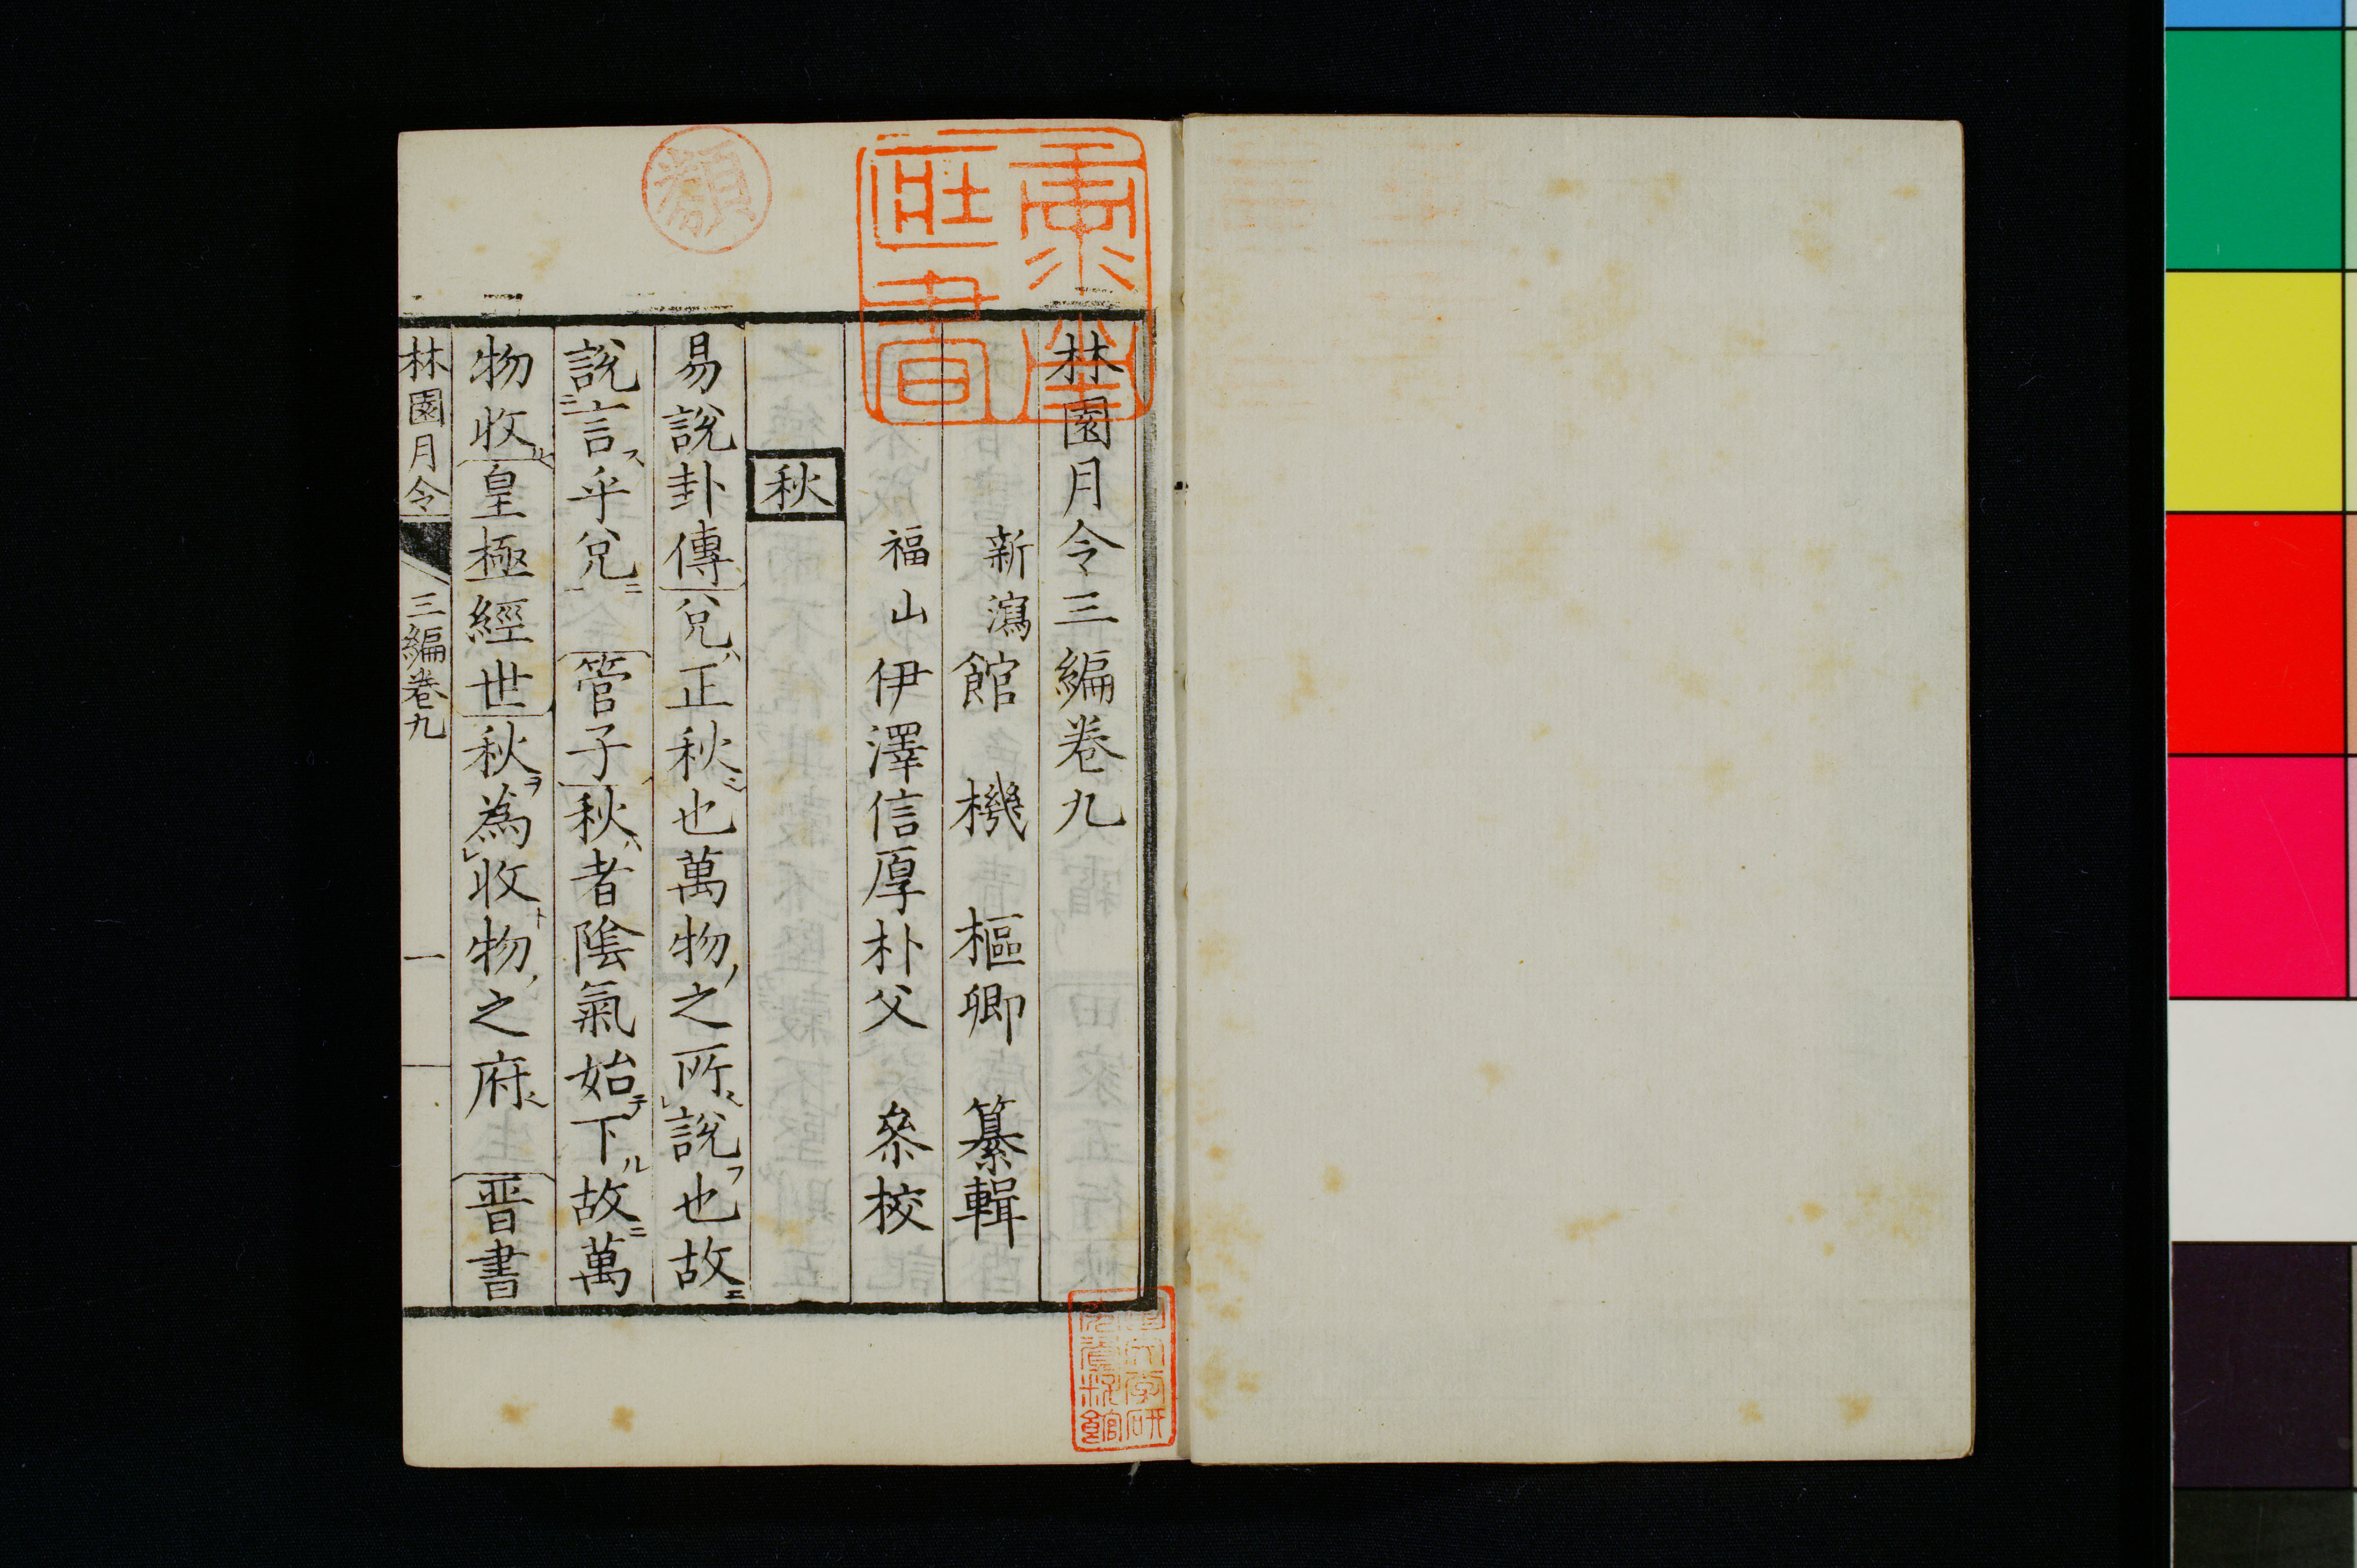 林園月令三編卷九
新瀉館機樞卿纂輯
福山伊澤信厚朴父叅校
秋
易說卦傳兌ハ正秋也萬物ノ之所說フ也故ニ
說言乎兌ニ管子秋ハ者陰氣始テ下ル故ニ萬
物收ル皇極經世秋ヲ為收物ノ之府晉書
林園月令 三編卷九 一